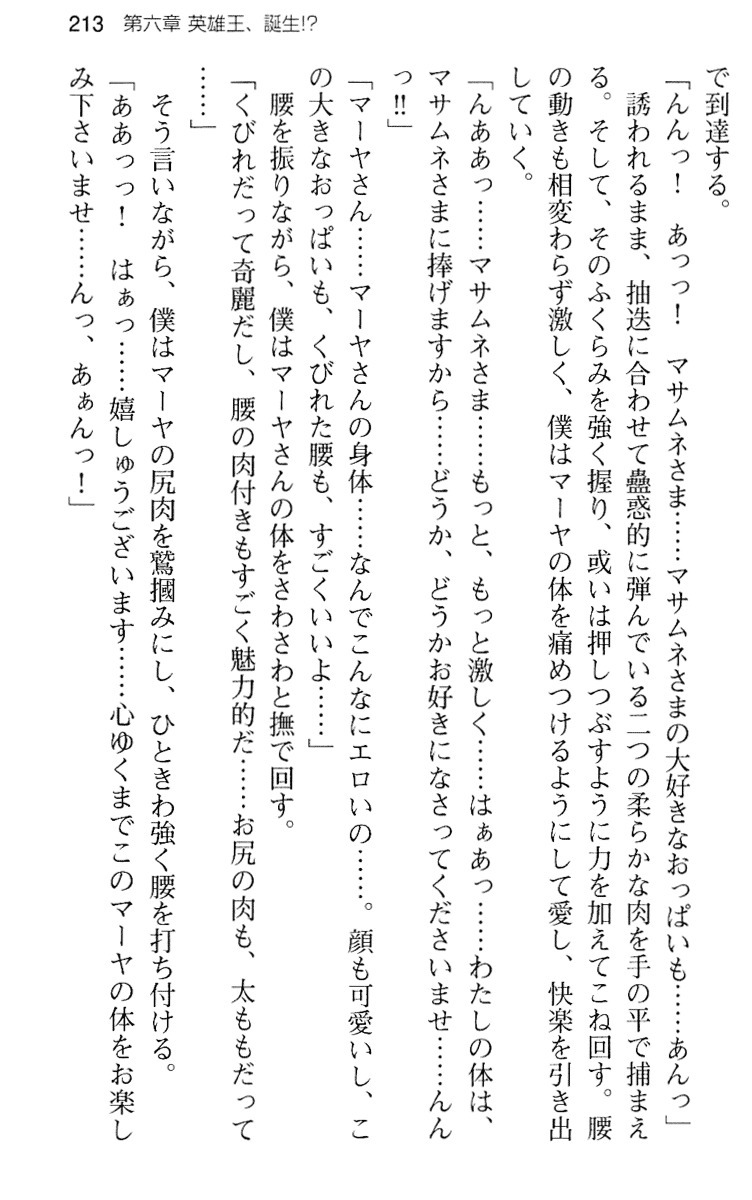 213 第六章 英雄王、誕生!?
で到達する。
「んんっ！　あっっ！　マサムネさま……マサムネさまの大好きなおっぱいも……あんっ」
　誘われるまま、抽迭に合わせて蠱惑的に弾んでいる二つの柔らかな肉を手の平で捕まえ
る。そして、そのふくらみを強く握り、或いは押しつぶすように力を加えてこね回す。腰
の動きも相変わらず激しく、僕はマーヤの体を痛めつけるようにして愛し、快楽を引き出
していく。
「んああっ……マサムネさま……もっと、もっと激しく……はぁあっ……わたしの体は、
マサムネさまに捧げますから……どうか、どうかお好きになさってくださいませ……んん
っ!!」
「マーヤさん……マーヤさんの身体……なんでこんなにエロいの……。顔も可愛いし、こ
の大きなおっぱいも、くびれた腰も、すごくいいよ……」
　腰を振りながら、僕はマーヤさんの体をさわさわと撫で回す。
「くびれだって奇麗だし、腰の肉付きもすごく魅力的だ……お尻の肉も、太ももだって
……」
　そう言いながら、僕はマーヤの尻肉を鷲摑みにし、ひときわ強く腰を打ち付ける。
「ああっっ！　はぁっ……嬉しゅうございます……心ゆくまでこのマーヤの体をお楽し
み下さいませ……んっ、あぁんっ！」